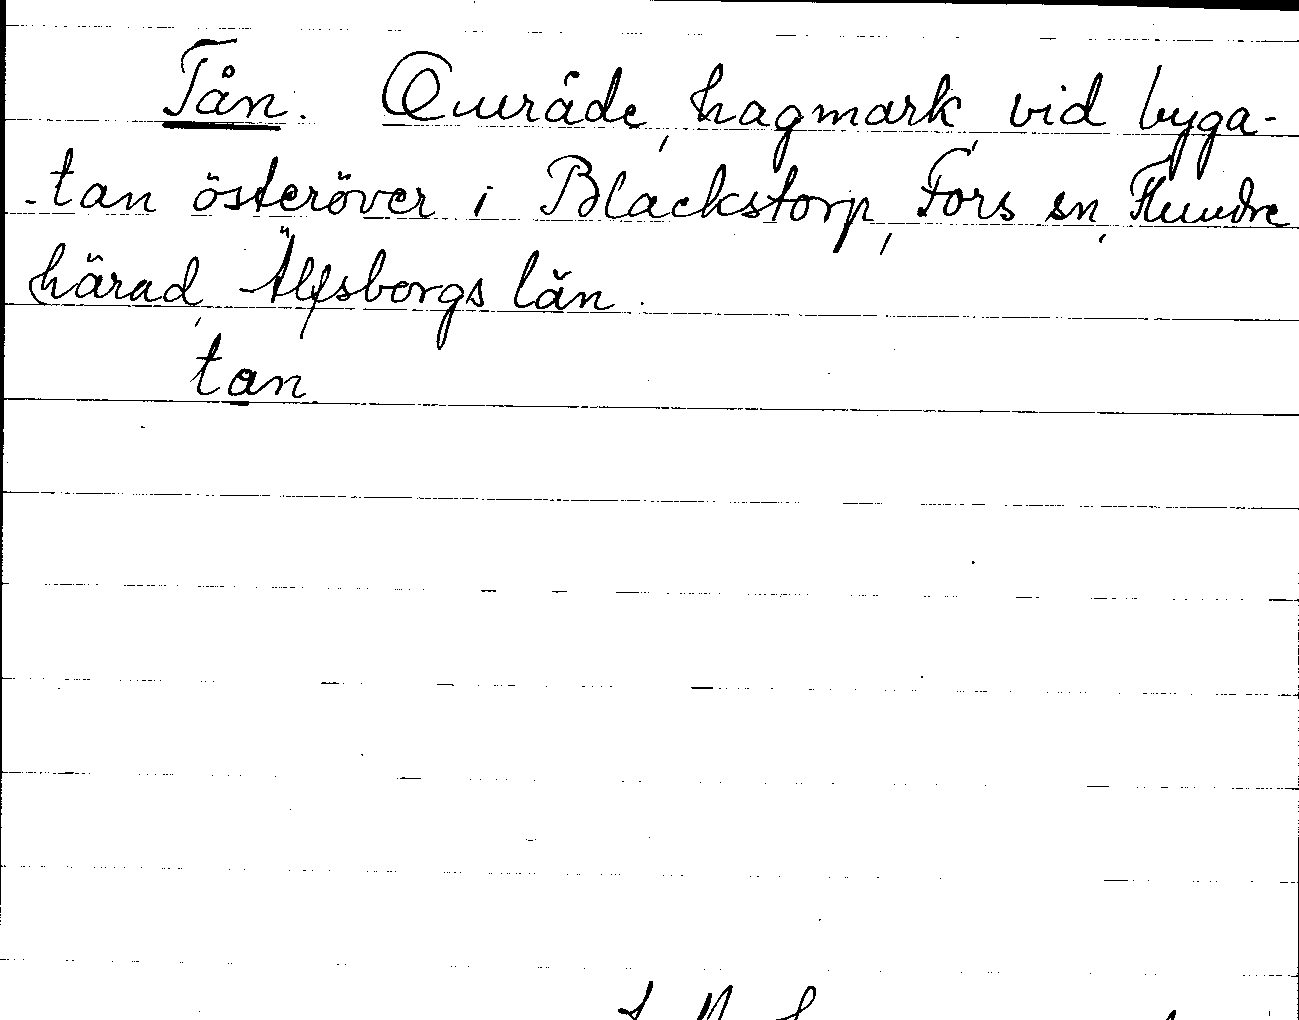 Tån. Område, hagmark, vid byga-
-tan österöver i Blackstorp, Fors sn, Flundre
härad, Älfsborgs län.
tan